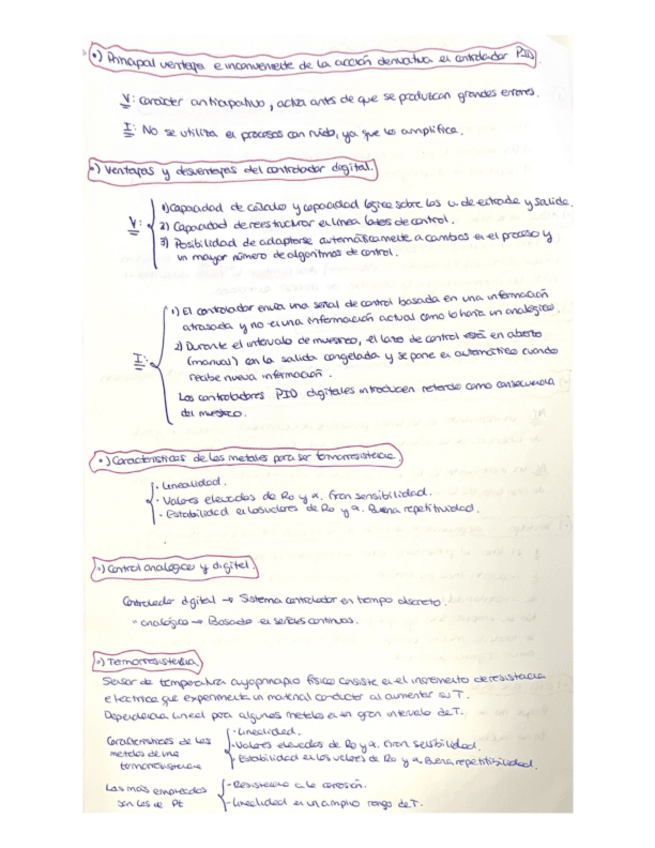 •) Principal ventaja e inconveniente de la acción derivativa en controlador PID.
V: carácter anticipativo, actúa antes de que se produzcan grandes errores.
I: No se utiliza en procesos con ruido, ya que lo amplifica.
•) Ventajas y desventajas del controlador digital.
V: 1) Capacidad de cálculo y capacidad lógica sobre las v. de entrada y salida.
2) Capacidad de reestructurar en línea lazos de control.
3) Posibilidad de adaptarse automáticamente a cambios en el proceso y
un mayor número de algoritmos de control.
I: 1) El controlador envía una señal de control basada en una información
atrasada y no en una información actual como lo haría un analógico.
2) Durante el intervalo de muestreo, el lazo de control está en abierto
(manual) con la salida congelada y se pone en automático cuando
recibe nueva información.
Los controladores PID digitales introducen retardo como consecuencia
del muestreo.
•) Características de los metales para ser termorresistencia.
· Linealidad.
· Valores elevados de Ro y α. Gran sensibilidad.
· Estabilidad en los valores de Ro y α. Buena repetitividad.
•) Control analógico y digital.
Controlador digital → Sistema controlador en tiempo discreto.
" analógico → Basado en señales continuas.
•) Termorresistencia
Sensor de temperatura cuyo principio físico consiste en el incremento de resistencia
eléctrica que experimenta un material conductor al aumentar su T.
Dependencia lineal para algunos metales en un gran intervalo de T.
Características de los metales de una termorresistencia
· Linealidad.
· Valores elevados de Ro y α. Gran sensibilidad.
· Estabilidad en los valores de Ro y α. Buena repetitibilidad.
Las más empleadas son las de Pt
- Resistencia a la corrosión.
- Linealidad en un amplio rango de T.